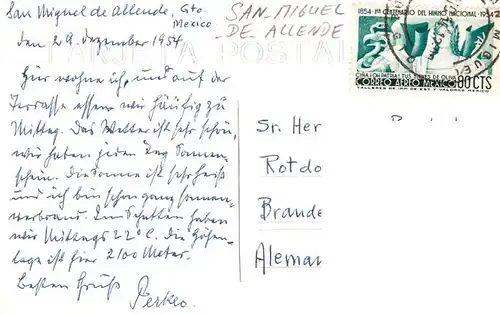 San Miguel de Allende, Gto.
Mexico
den 29. Dezember 1954
SAN MIGUEL
DE ALLENDE
TARJETA POSTAL
1854-1er CENTENARIO DEL HIMNO NACIONAL-1954
CIÑA ¡OH PATRIA! TUS SIENES DE OLIVA
CORREO AEREO MEXICO 80 CTS
TALLERES DE IMP. DE EST. Y VALORES-MEXICO
Hier wohne ich, und auf der
Terrasse essen wir häufig zu
Mittag. Das Wetter ist sehr schön,
wir haben jeden Tag Sonnen-
schein. Die Sonne ist sehr heiß
und ich bin schon ganz sonnen-
verbrannt. Im Schatten haben
wir Mittags 22°C. Die Höhen-
lage ist hier 2100 Meter.
Besten Gruß
Perkeo.
Sr. Her
Rotdo
Brande
Aleman